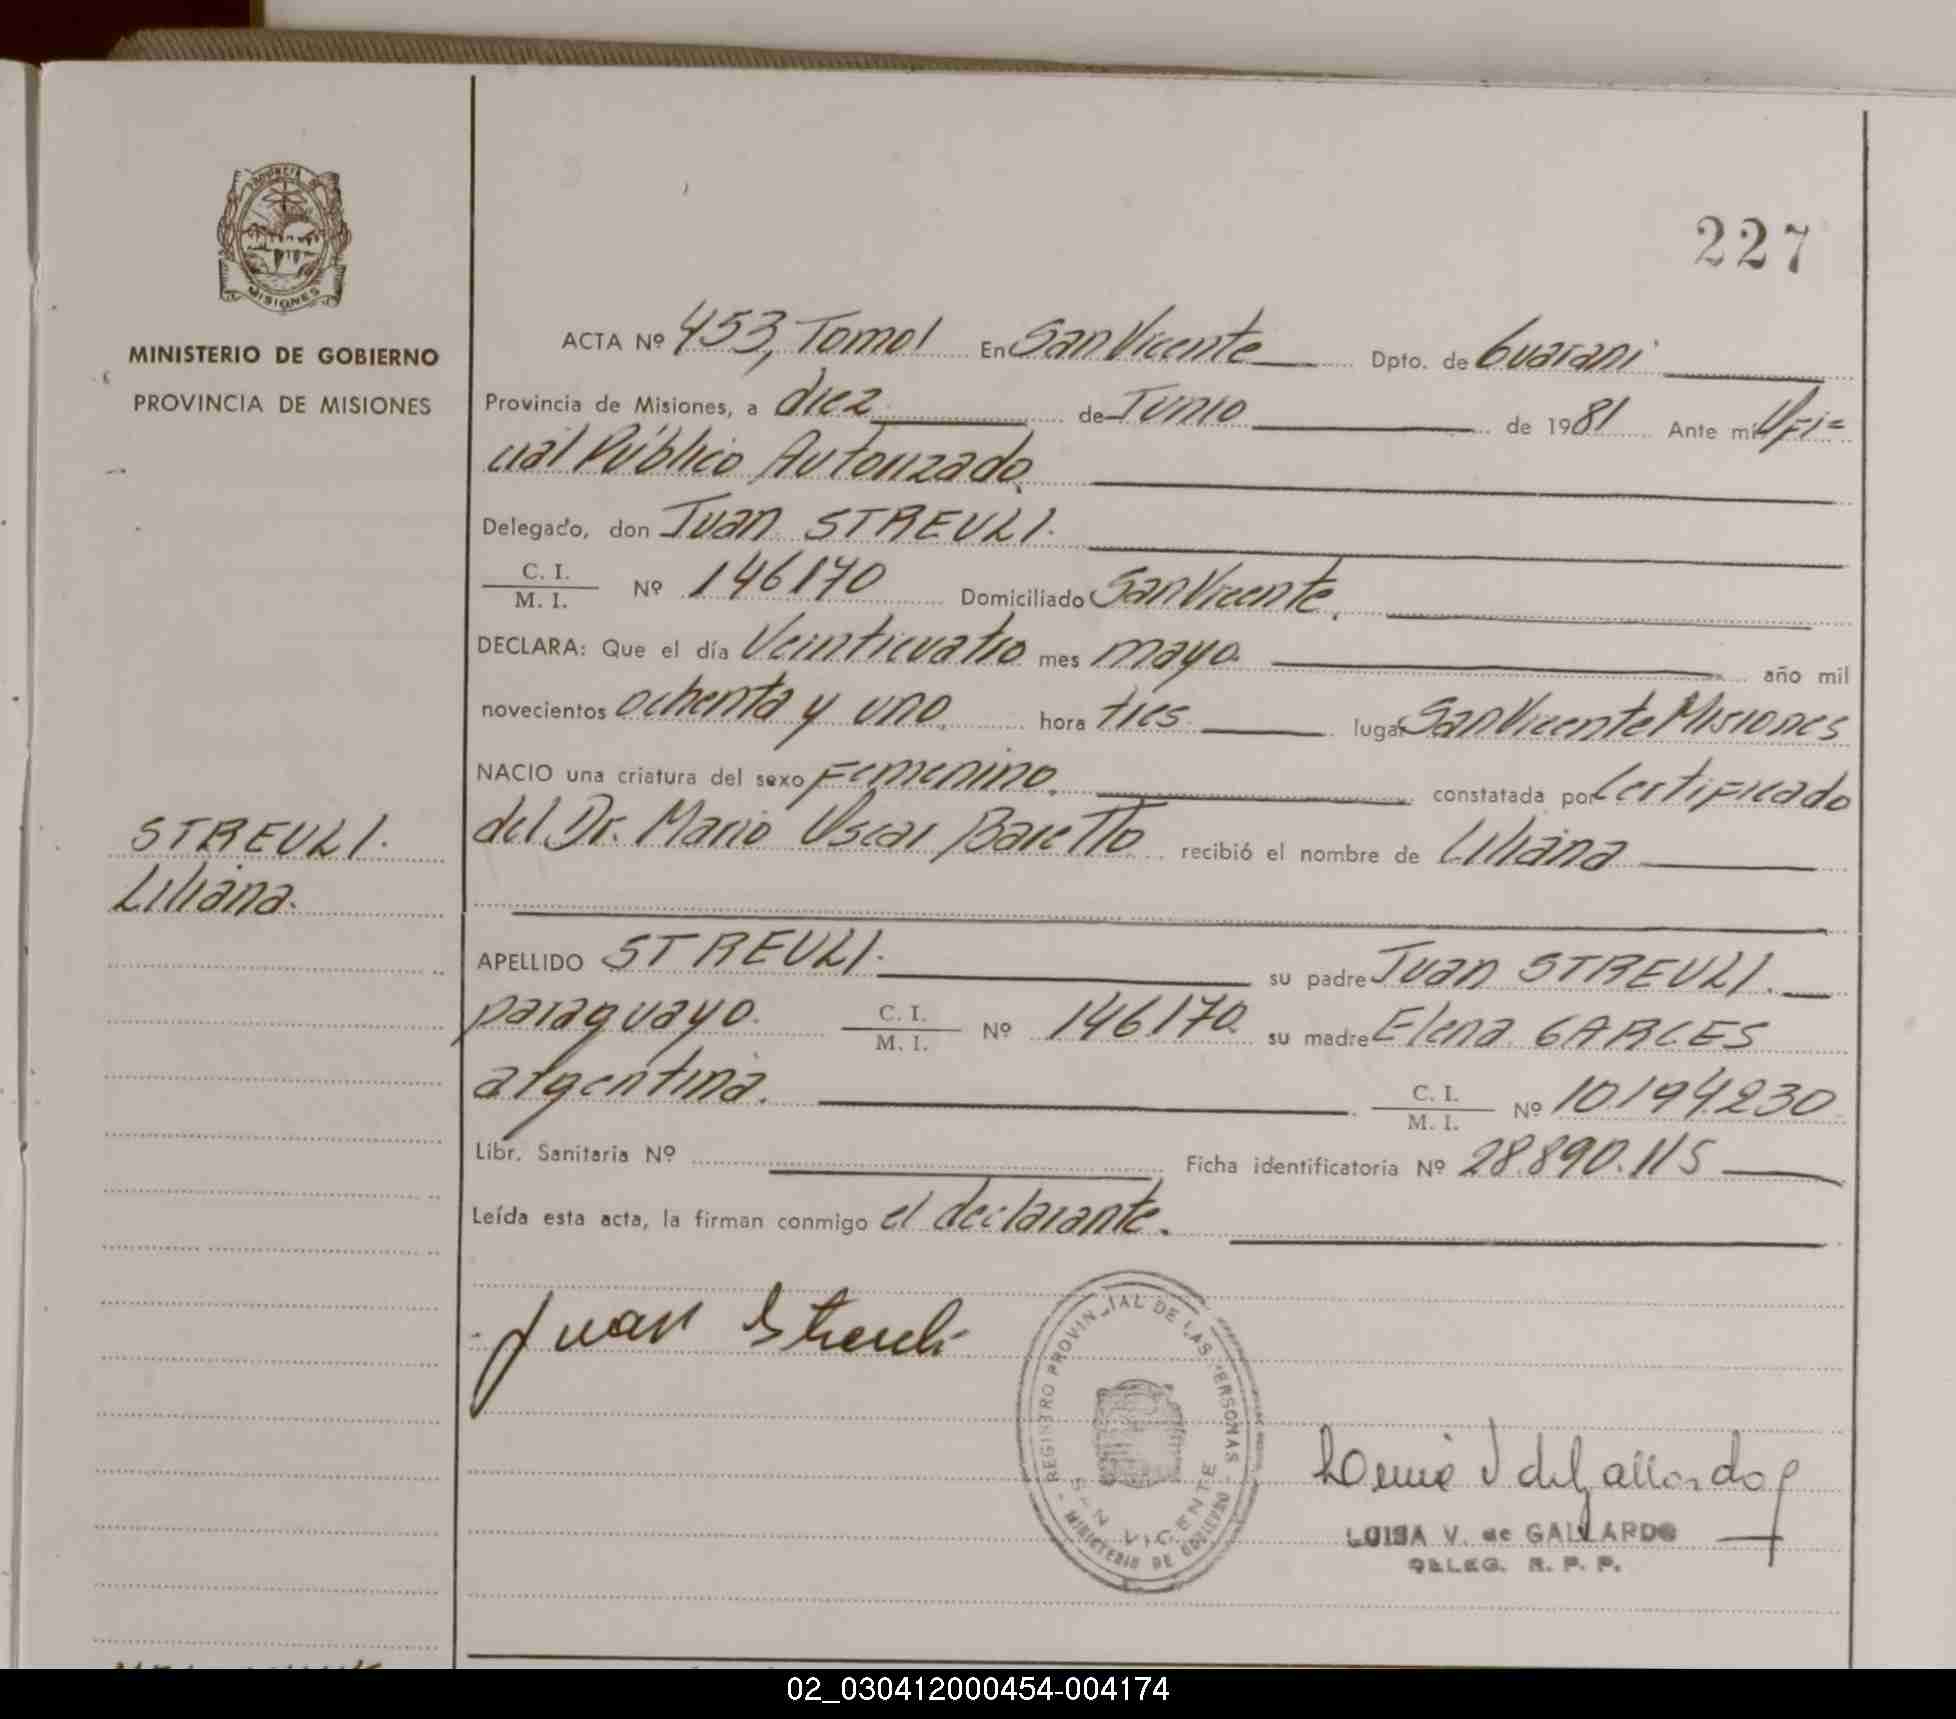 227
PROVINCIA DE
MISIONES
MINISTERIO DE GOBIERNO
PROVINCIA DE MISIONES
STREULI.
Liliana.
ACTA Nº 453, Tomo I En San Vicente Dpto. de Guarani
Provincia de Misiones, a diez de Junio de 1981 Ante mi Ofi=
cial Público Autorizado
Delegado, don Juan STREULI.
C. I.
M. I. Nº 146170 Domiciliado San Vicente.
DECLARA: Que el día Veinticuatro mes mayo año mil
novecientos ochenta y uno hora tres lugar San Vicente Misiones
NACIO una criatura del sexo Femenino. constatada por Certificado
del Dr. Mario Oscar Baretto recibió el nombre de Liliana
APELLIDO STREULI. su padre Juan STREULI.
paraguayo. C. I.
M. I. Nº 146170. su madre Elena GARCES
argentina. C. I.
M. I. Nº 10.194.230
Libr. Sanitaria Nº Ficha identificatoria Nº 28.890.115
Leída esta acta, la firman conmigo el declarante.
Juan Streuli
REGISTRO PROVINCIAL DE LAS PERSONAS
SAN VICENTE
MINISTERIO DE GOBIERNO
LUISA V. de GALLARDO
DELEG. R. P. P.
02_030412000454-004174